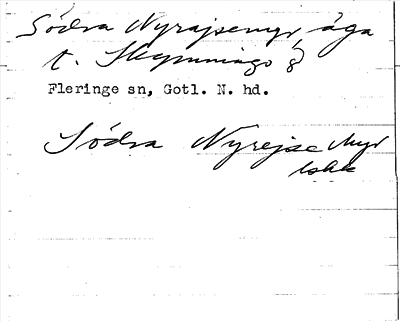 Södra Nyrajsemyr, äga
t. Skymnings 8
Fleringe sn, Gotl. N. hd.
Södra Nyrejse Myr